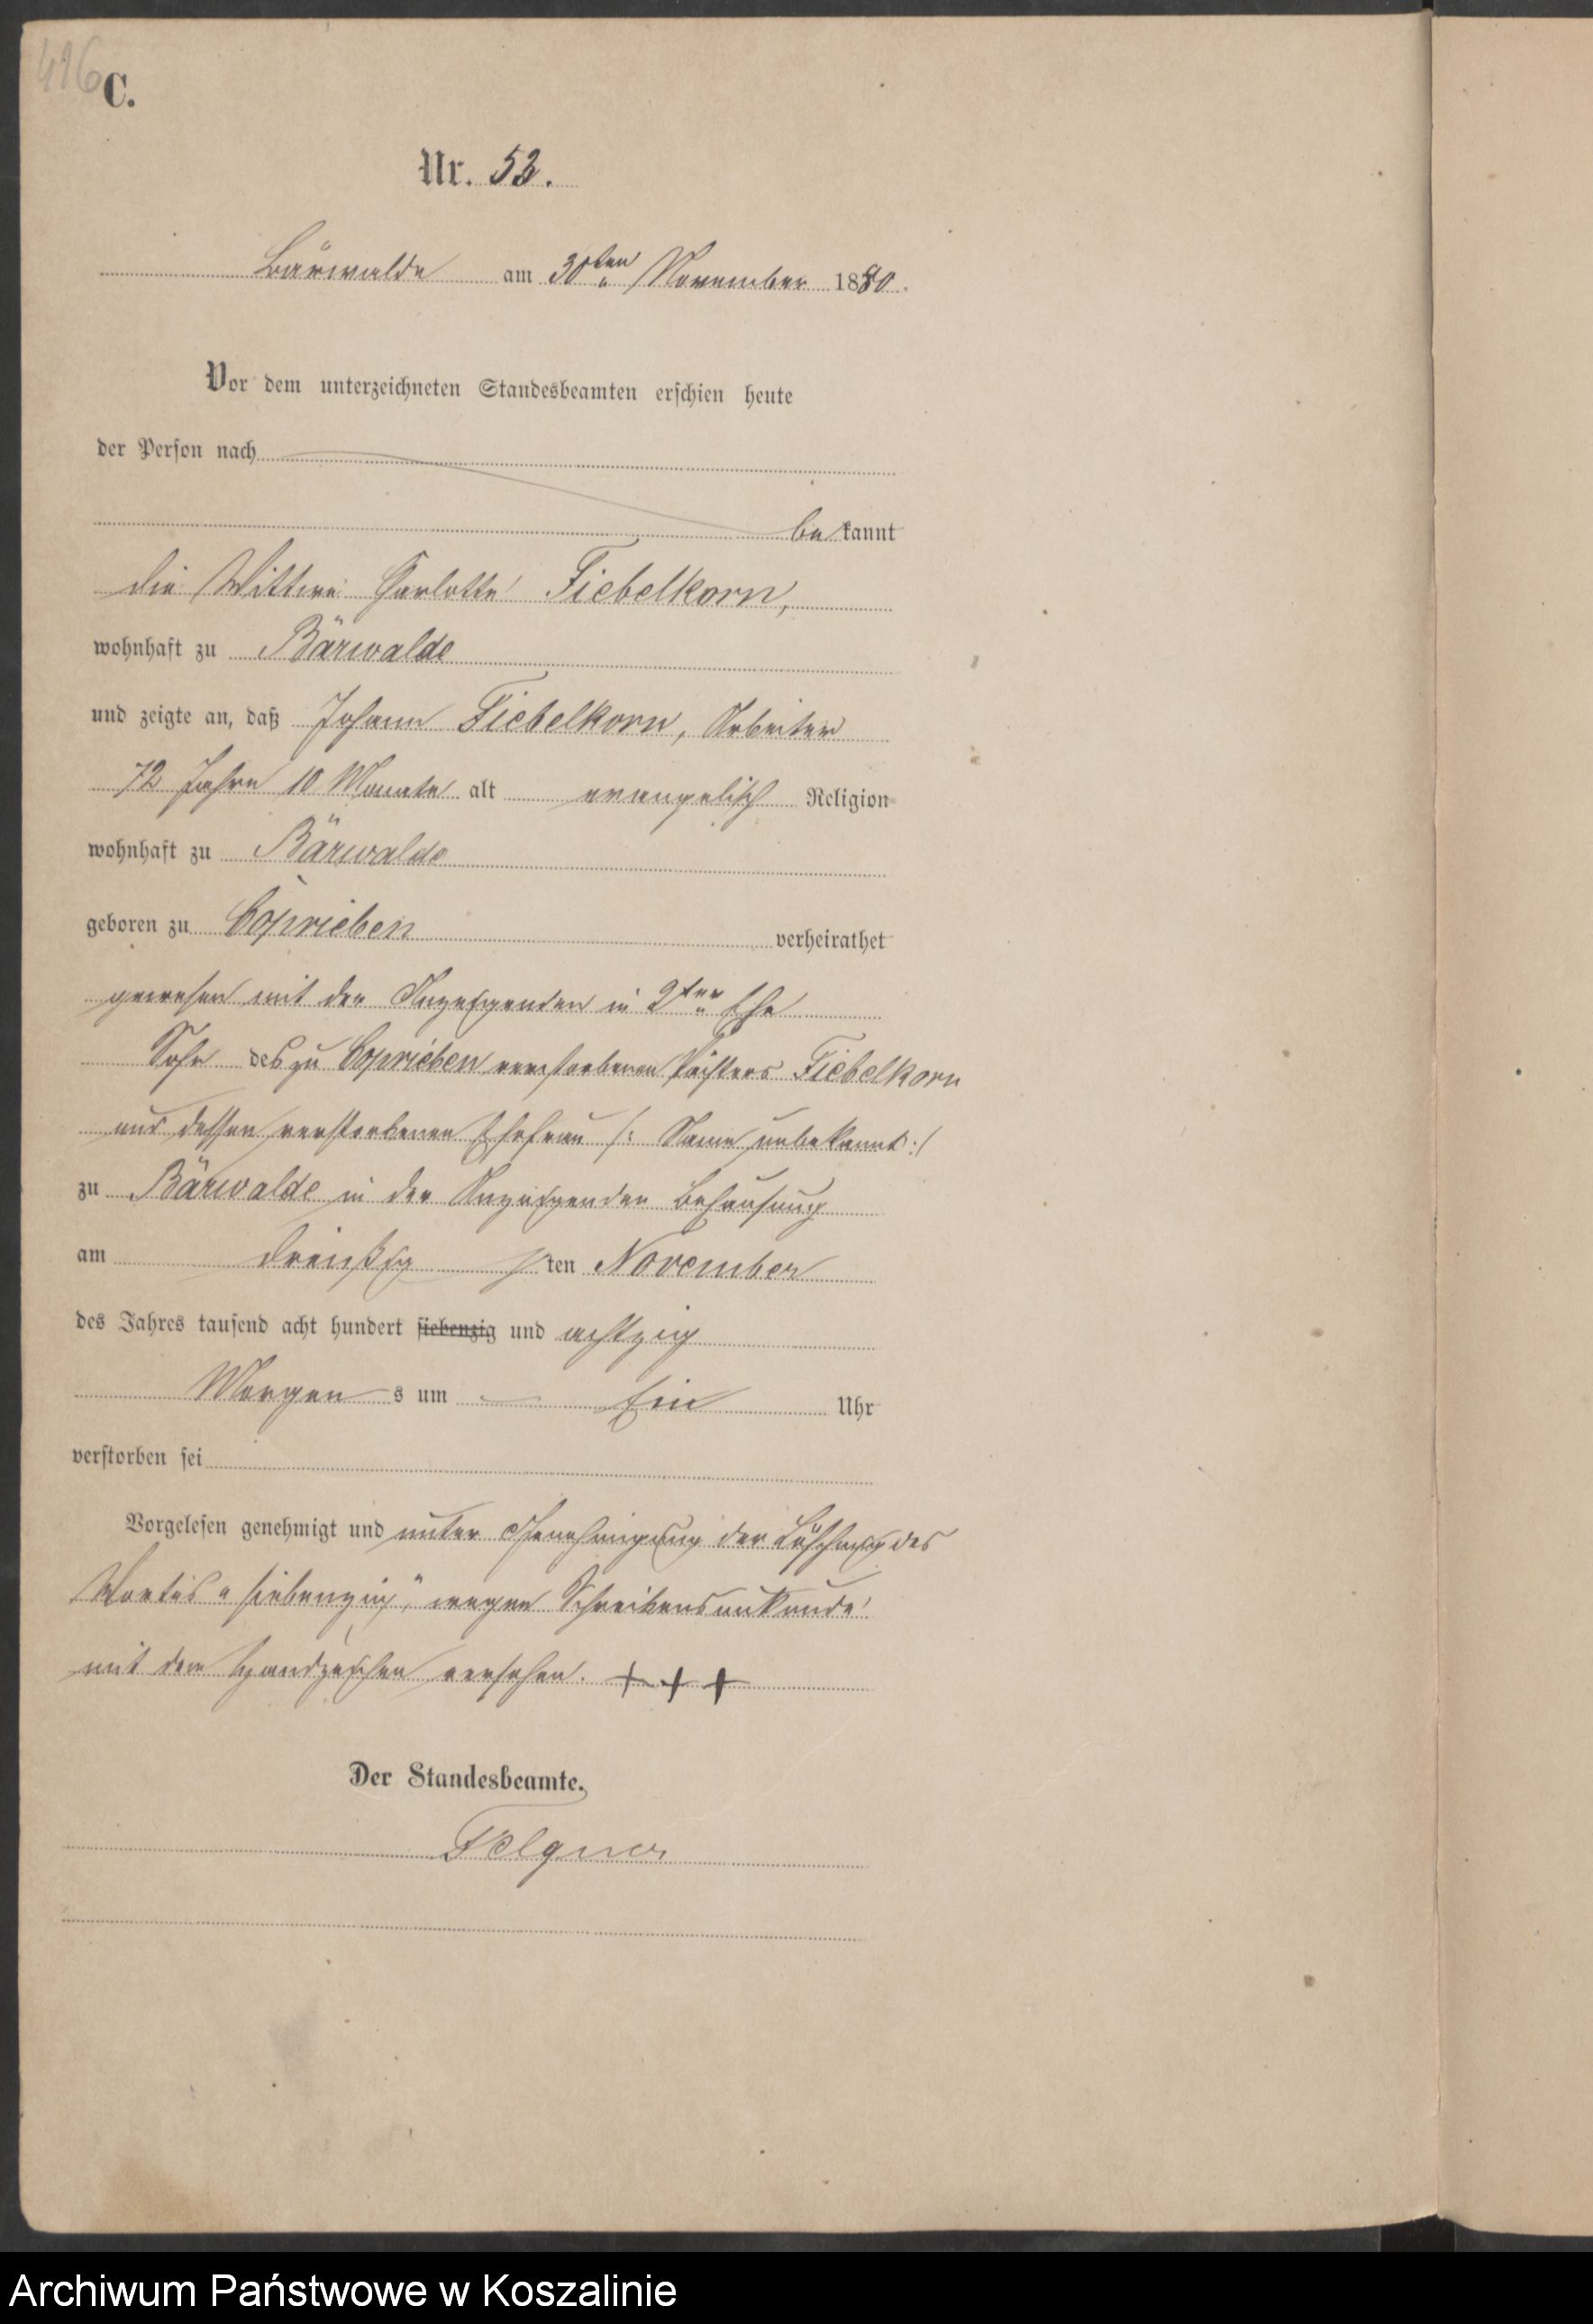 416
C.
Nr. 53.
Bärwalde am 30ten November 1880.
Vor dem unterzeichneten Standesbeamten erschien heute
der Person nach
bekannt
die Wittwe Charlotte Fiebelkorn,
wohnhaft zu Bärwalde
und zeigte an, daß Johann Fiebelkorn, Arbeiter
72 Jahre 10 Monate alt evangelisch Religion
wohnhaft zu Bärwalde
geboren zu Coprieben verheirathet
gewesen mit der Anzeigenden in 2ter Ehe
Sohn des zu Coprieben verstorbenen Fiebelkorn
und dessen verstorbenen Ehefrau /: Name unbekannt :/
zu Bärwalde in der Anzeigenden Behausung
am dreißig sten November
des Jahres tausend acht hundert siebenzig und achtzig
Morgens um Ein Uhr
verstorben sei
Vorgelesen genehmigt und unter Genehmigung der Löschung des
Wortes "siebenzig", wegen Schreibensunkunde
mit dem Handzeichen versehen. + + +
Der Standesbeamte.
Felgner
Archiwum Państwowe w Koszalinie